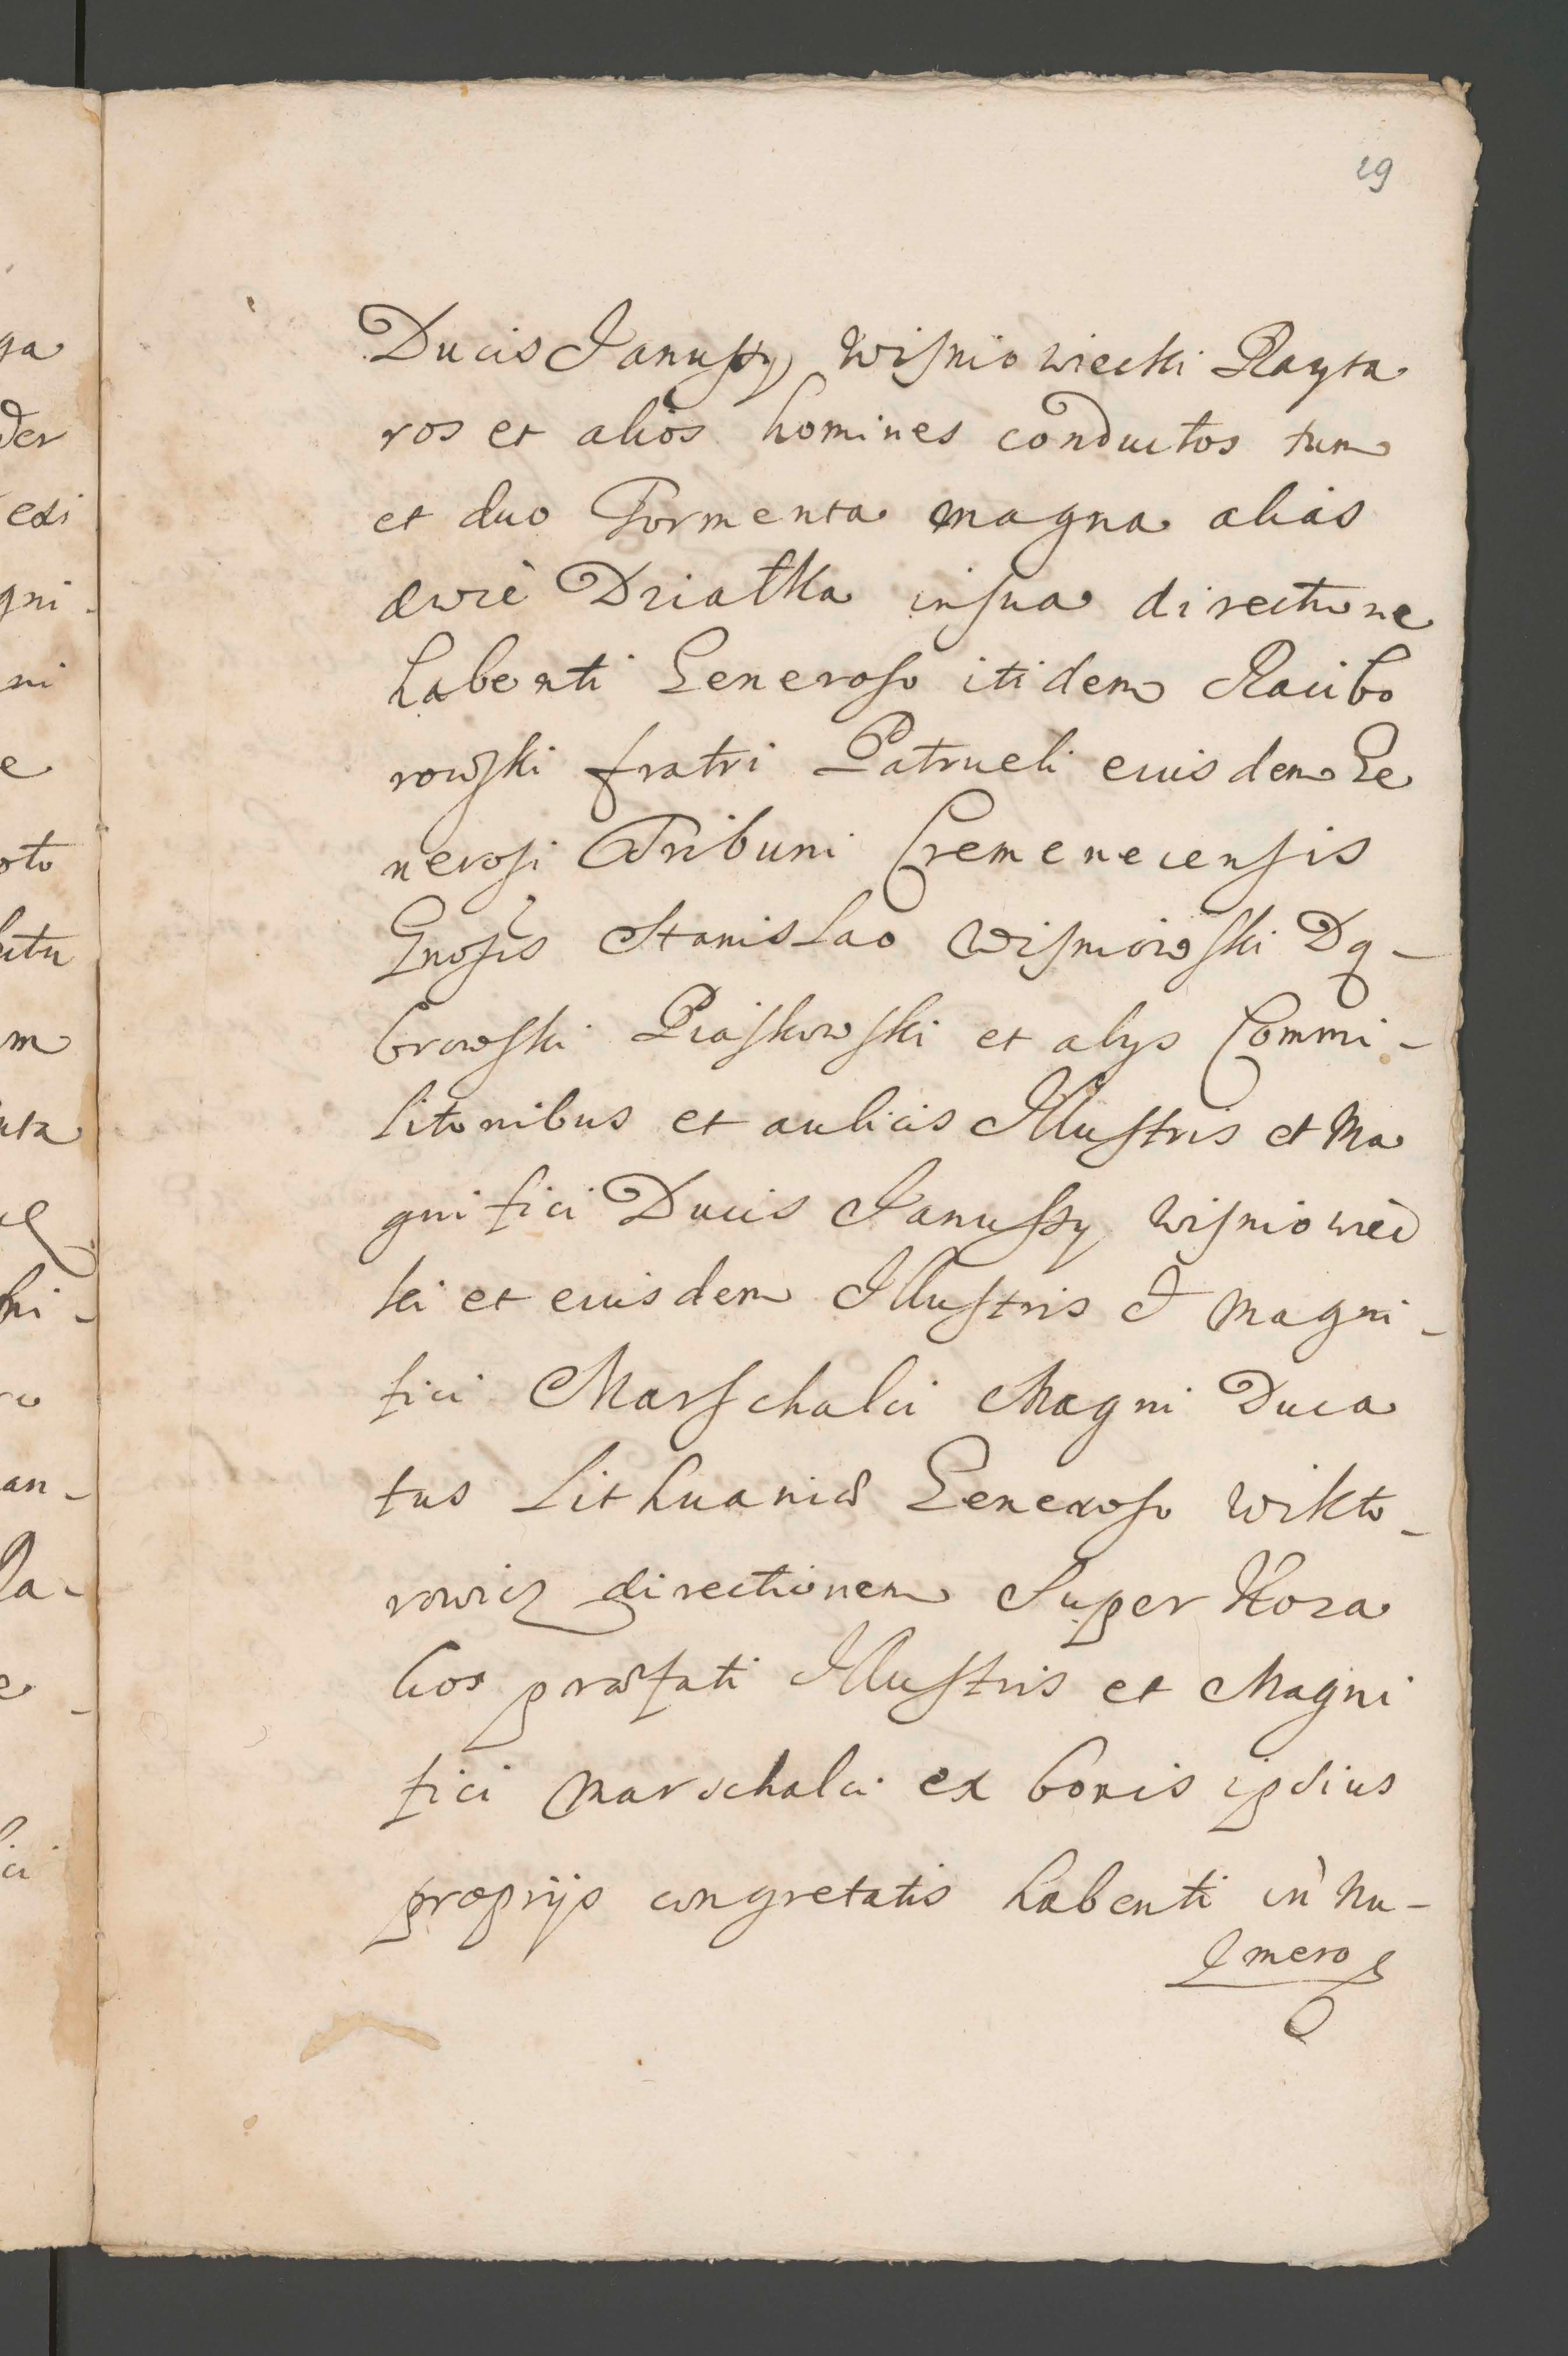 29
Ducis Janussy Wisniowiecki Rayta
ros et alios homines conductos tum
et duo Tormenta magna alias
dwie Dziatka in sua directione
habenti Generoso itidem Racibo
rowski fratri Patrueli eiusdem Ge
nerosi Tribuni Cremenecensis
Gnosis Stanislao Wisniowski Dą-
browski Piaskowski et alys Commi-
litonibus et aulicis Illustris et Ma
gnifici Ducis Janussy Wisniowiec
ki et eiusdem Illustris & Magni-
fici Marschalci Magni Duca
tus Lithuaniæ Generoso Wikto-
rowicz directionem super Koza
kos præfati Illustris et Magni
fici Marschalci ex bonis ipsius
proprijs congretatis habenti in Nu-
mero